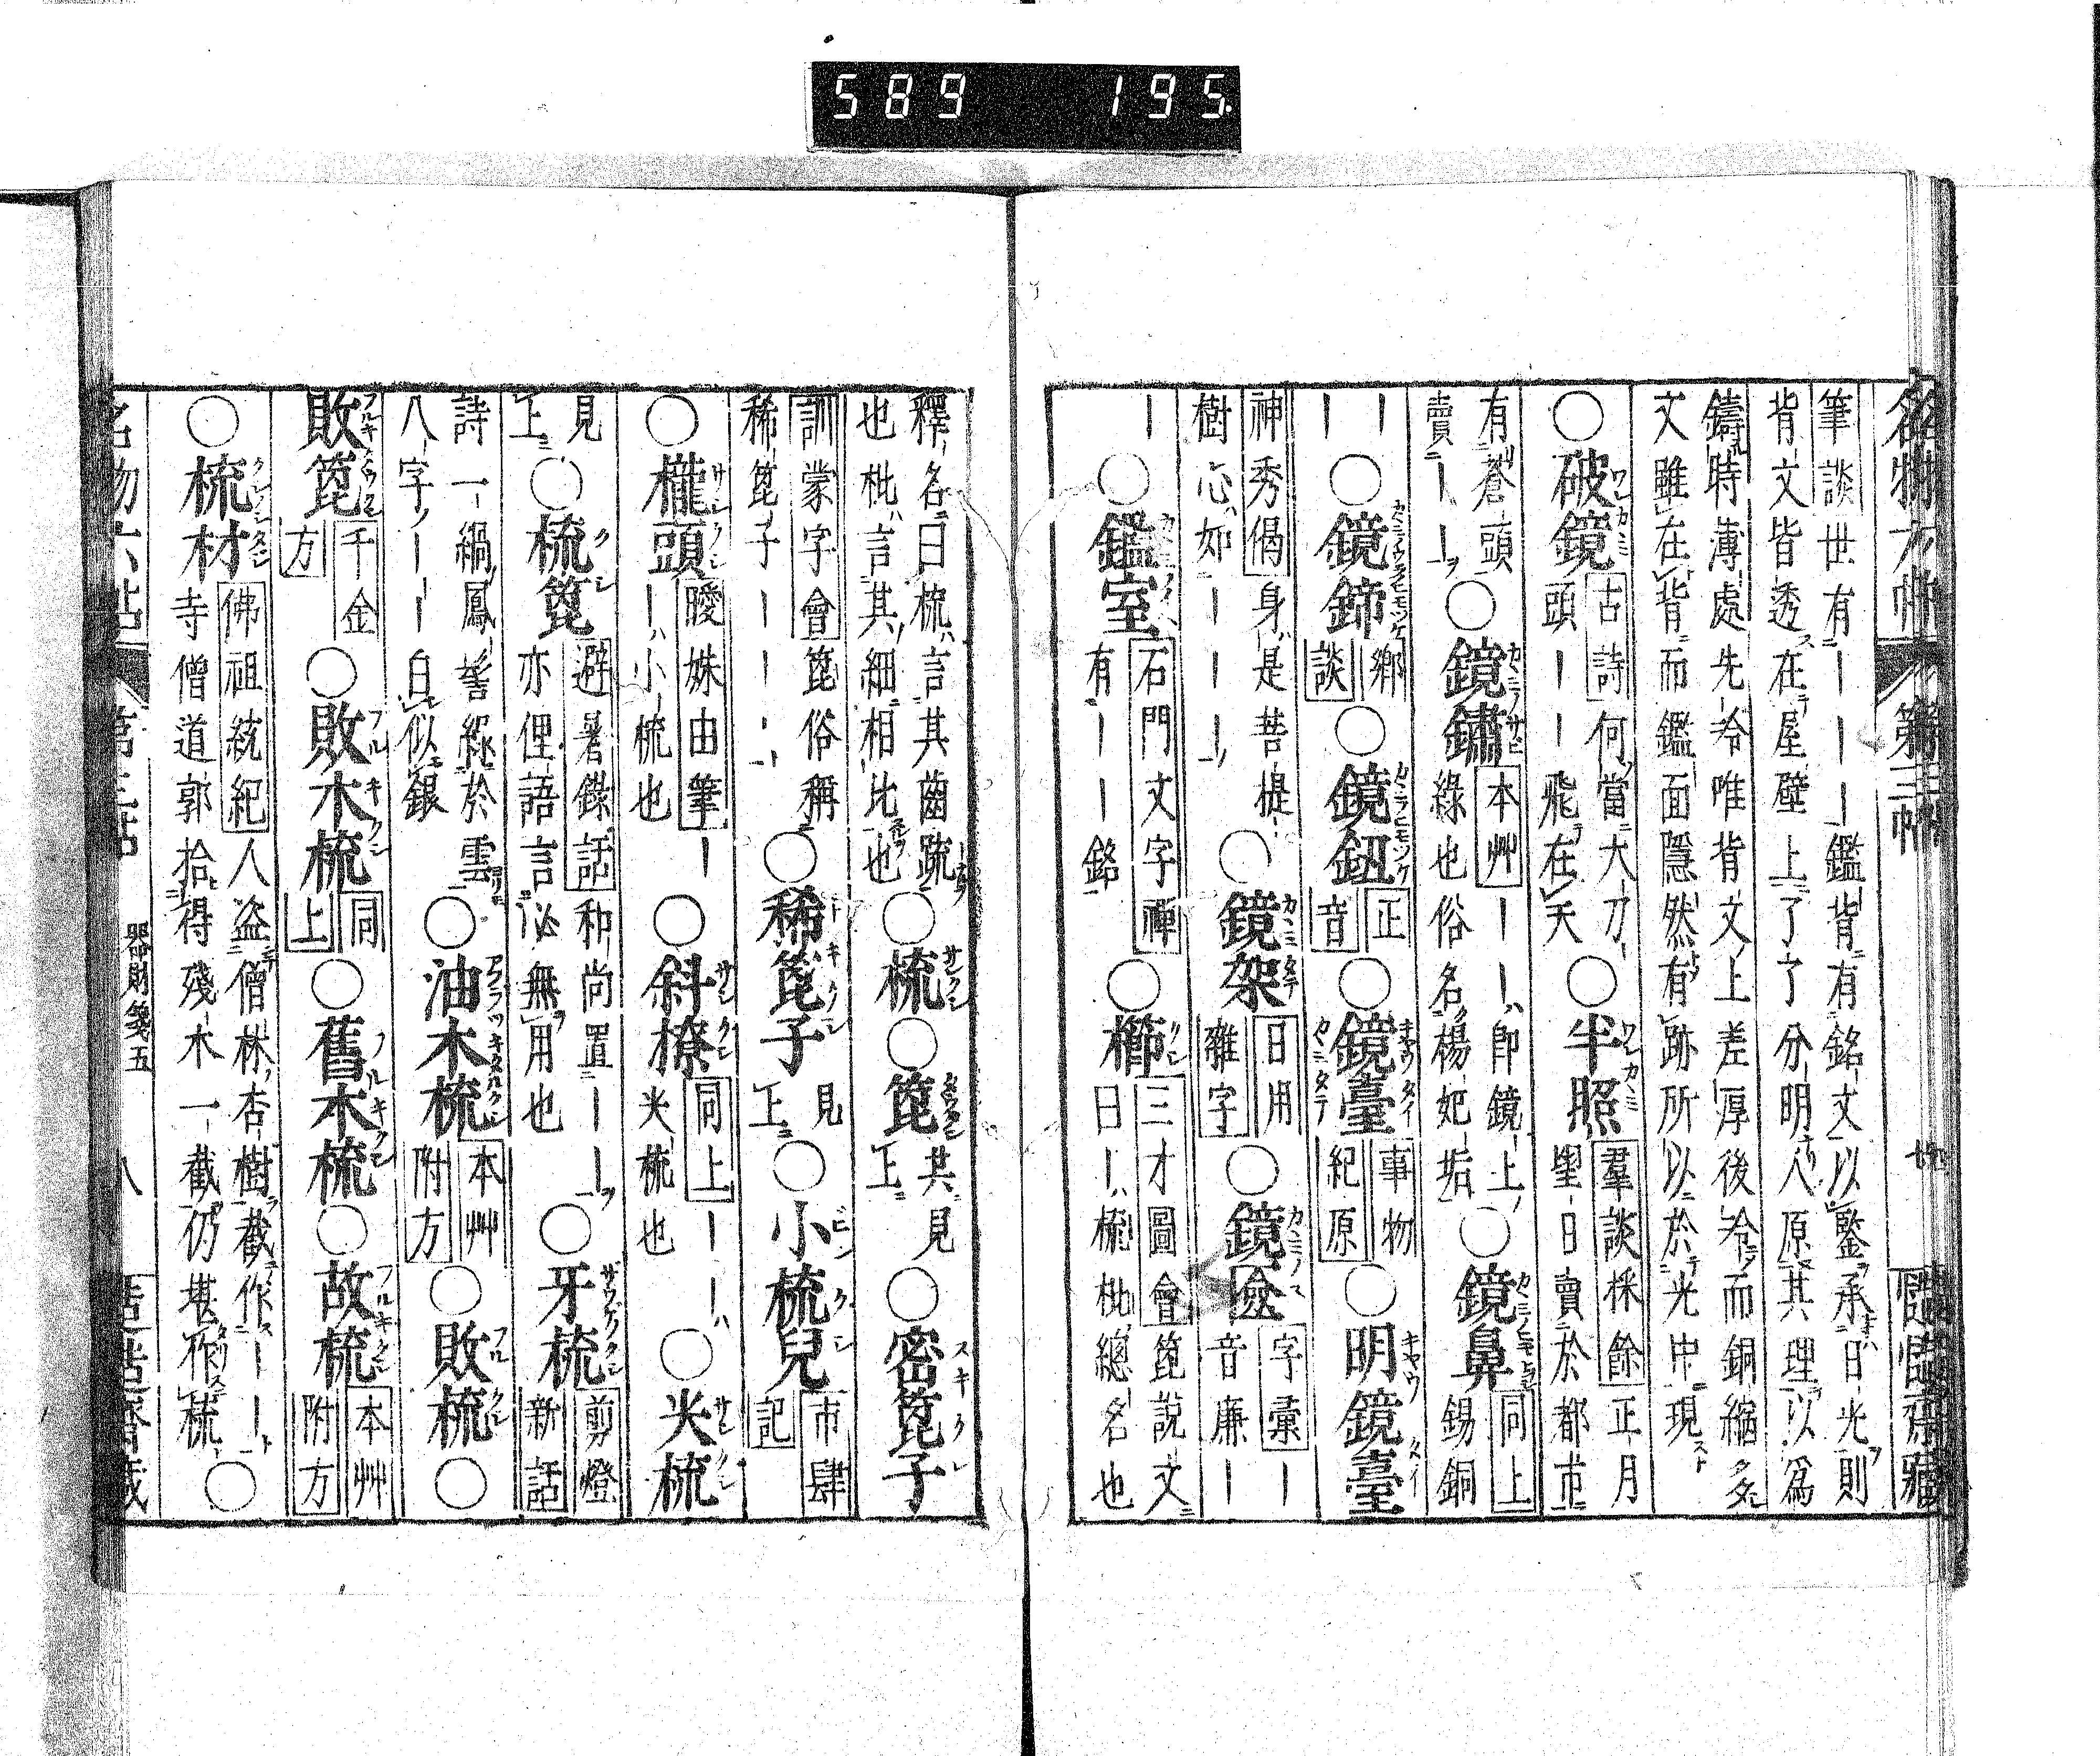 589 195
名物六帖 第三帖 慥慥齋藏
筆談世有ーーー鑑背有銘文以鑒承日光則
背文皆透在屋壁上了了分明人原其理以爲
鑄時薄處先冷唯背文上差厚後冷而銅縮多
文雖在背而鑑面隱然有跡所以於光中現
○破鏡 古詩何當大刀頭ーー飛在天 ○半照 羣談採餘正月望日賣於都市
有蒼頭賣ーー ○鏡鏽 本艸ーー即鏡上綠也俗名楊妃垢 ○鏡鼻 同上錫銅
ーー ○鏡鍗 鄉談 ○鏡鈕 正音 ○鏡臺 事物紀原 ○明鏡臺
神秀偈身是菩提樹心如ーーー ○鏡架 日用雜字 ○鏡匳 字彙音廉ーー
ー ○鑑室 石門文字禪有ーー銘 ○櫛 三才圖會篦說文曰ー梳枇總名也
釋名曰梳言其齒疏也枇言其細相比也 ○梳 ○篦 共見上 ○密篦子
訓蒙字會篦俗稱稀篦子ーーー ○稀篦子 見上 ○小梳兒 市肆記
○櫳頭 曖姝由筆ーー小梳也 ○斜橑 同上ーー夾梳也 ○夾梳
見上 ○梳篦 避暑錄話和尚置ーー亦俚語言必無用也 ○牙梳 剪燈新話
詩一緺鳳髻綠於雲八字ーー白似銀 ○油木梳 本艸附方 ○敗梳 ○
敗篦 千金方 ○敗木梳 同上 ○舊木梳 ○故梳 本艸附方
○梳材 佛祖統紀人盜僧林杏樹截作ーー寺僧道郭拾得殘木一截仍堪作梳 ○
名物六帖 第三帖 器財箋五 八 慥慥齋藏